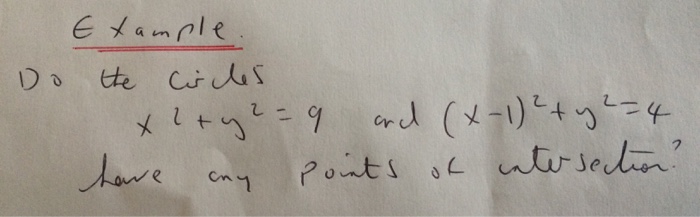 Example.
Do the circles
x² + y² = 9 and (x-1)² + y² = 4
have any points of intersection?